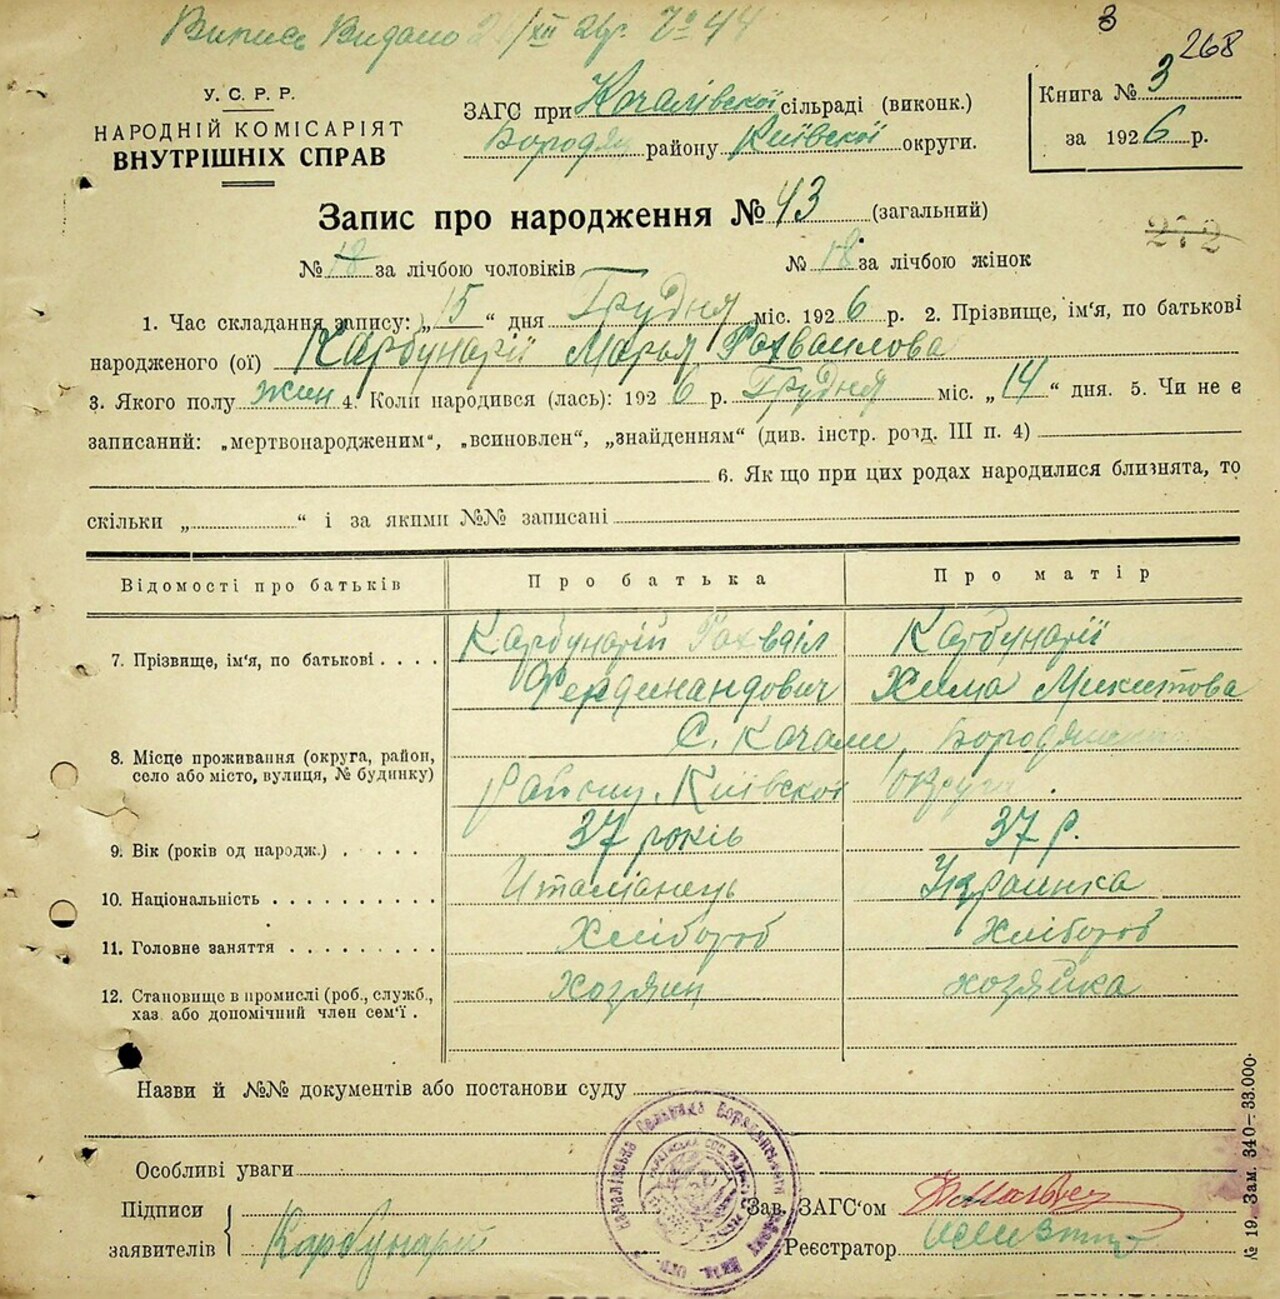 Випись Видано 2 /XII 26р. № 44
3
268
У. С. Р. Р.
НАРОДНІЙ КОМІСАРІЯТ
ВНУТРІШНІХ СПРАВ
ЗАГС при Кочалівскої сільраді (виконк.)
Бородян району Київскої округи.
Книга № 3
за 1926 р.
Запис про народження № 43 (загальний)
272
№ 18 за лічбою чоловіків № 18 за лічбою жінок
1. Час складання запису: „15“ дня Грудня міс. 1926 р. 2. Прізвище, ім‘я, по батькові
народженого (ої) Карбунарії Марья Рохваилова
3. Якого полу жин 4. Коли народився (лась): 1926 р. Грудня міс. „14“ дня. 5. Чи не є
записаний: „мертвонародженим“, „всиновлен“, „знайденням“ (див. інстр. розд. III п. 4)
6. Як що при цих родах народилися близнята, то
скільки „ “ і за якими №№ записані
Відомості про батьків Про батька Про матір
7. Прізвище, ім‘я, по батькові . . . . Карбунарій Рохваіл Карбунарії
Фердинандович Хима Микитова
8. Місце проживання (округа, район, село або місто, вулиця, № будинку) С. Кочали, Бородянского
району. Київскої округи.
9. Вік (років од народж.) . . . . . 37 років 37 р.
10. Національність . . . . . . . . . . Италіанець Украинка
11. Головне заняття . . . . . . . . . Хлібороб Хлібороб
12. Становище в промислі (роб., служб., хаз. або допомічний член сем‘ї . Хозяин хозяйка
Назви й №№ документів або постанови суду
Особливі уваги
Підписи
заявителів Карбунарій
Зав. ЗАГС‘ом
Реєстратор
№ 19. Зам. 340—33.000.